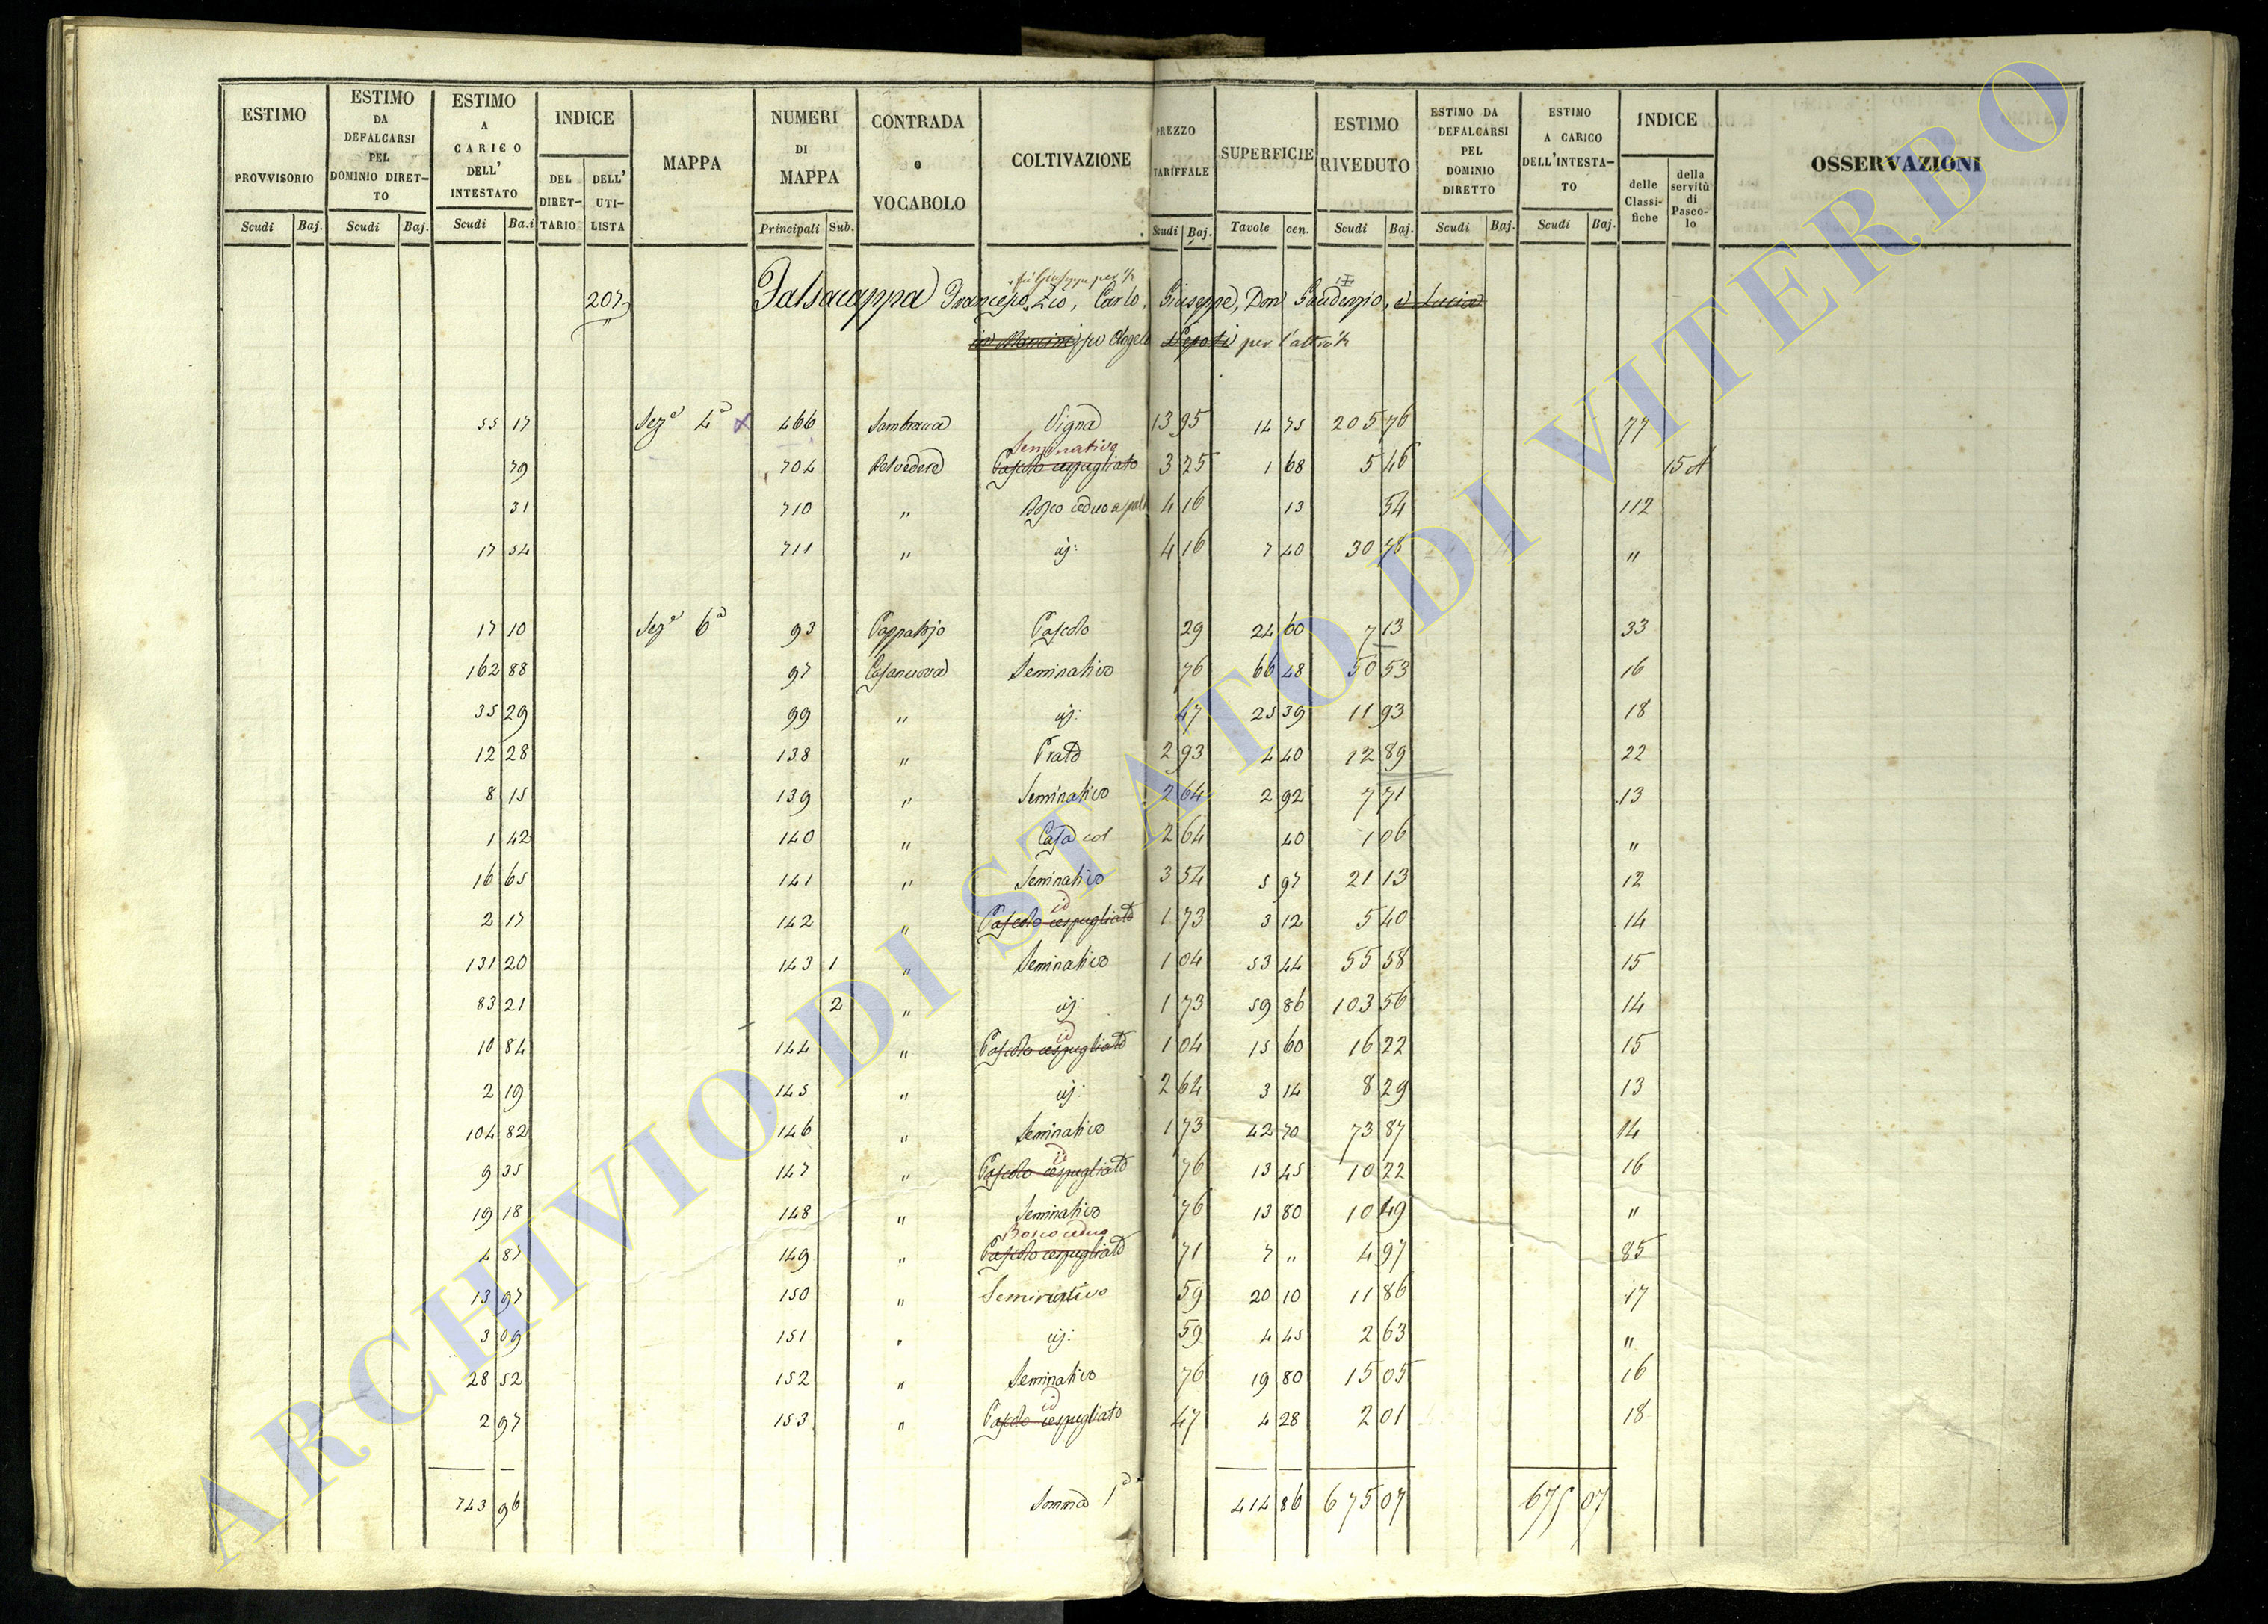 ESTIMO PROVVISORIO
ESTIMO DA DEFALCARSI PEL DOMINIO DIRET-TO
ESTIMO A CARICO DELL' INTESTATO
INDICE
DEL DIRET-TARIO
DELL' UTI-LISTA
MAPPA
NUMERI DI MAPPA
CONTRADA o VOCABOLO
COLTIVAZIONE
PREZZO TARIFFALE
SUPERFICIE
ESTIMO RIVEDUTO
ESTIMO DA DEFALCARSI PEL DOMINIO DIRETTO
ESTIMO A CARICO DELL'INTESTA-TO
INDICE
delle Classi-fiche
della servitù di Pasco-lo
OSSERVAZIONI
Scudi Baj. Scudi Baj. Scudi Ba.i Principali Sub. Scudi Baj. Tavole cen. Scudi Baj. Scudi Baj. Scudi Baj.
fu Giuseppe per 1/2
207 Falsacappa Francesco, Zio, Carlo, Giuseppe, Don Gaudenzio, e Lucia
fu Angelo Nepoti per l'altro 1/2
55 17 Sez.e 4a x 466 Sambuca Vigna 13 95 14 75 205 76 77
Seminativo
79 704 Belvedere Pascolo cespugliato 3 25 1 68 5 46 15 A
31 710 " Bosco ceduo 4 16 13 54 112
17 54 711 " id: 4 16 7 40 30 78 "
17 10 Sez.e 6a 93 Pascolo 29 24 60 7 13 33
162 88 97 Casanuova Seminativo 76 66 48 50 53 16
35 29 99 " id: 47 25 39 11 93 18
12 28 138 " Prato 2 93 4 40 12 89 22
8 15 139 " Seminativo 2 64 2 92 7 71 13
1 42 140 " Casa col 2 64 40 1 06 "
16 65 141 " Seminativo 3 54 5 97 21 13 12
id
2 17 142 " Pascolo cespugliato 1 73 3 12 5 40 14
131 20 143 1 " Seminativo 1 04 53 44 55 58 15
83 21 2 " id: 1 73 59 86 103 56 14
id
10 84 144 " Pascolo cespugliato 1 04 15 60 16 22 15
2 19 145 " id: 2 64 3 14 8 29 13
104 82 146 " Seminativo 1 73 42 70 73 87 14
id
9 35 147 " Pascolo cespugliato 76 13 45 10 22 16
19 18 148 " Seminativo 76 13 80 10 49 "
Bosco ceduo
4 87 149 " Pascolo cespugliato 71 7 " 4 97 85
13 97 150 " Seminativo 59 20 10 11 86 17
3 09 151 " id: 59 4 45 2 63 "
28 52 152 " Seminativo 76 19 80 15 05 16
id
2 97 153 " Pascolo cespugliato 47 4 28 2 01 18
743 96 Somma 1a 414 86 675 07 675 07
ARCHIVIO DI STATO DI VITERBO